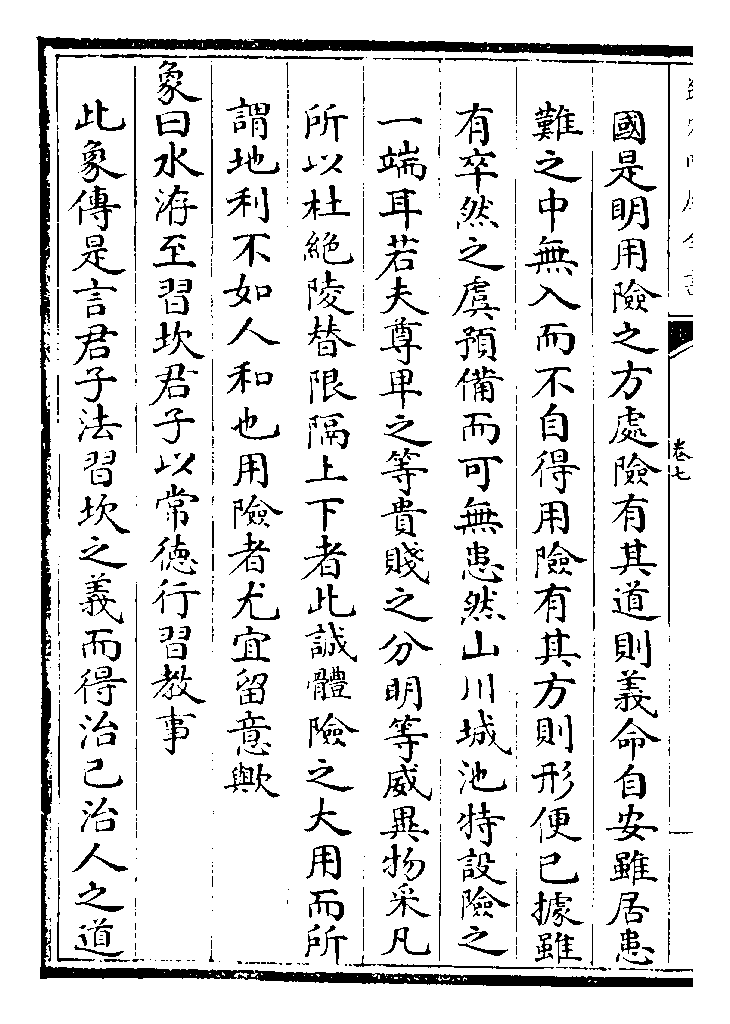 國是明用險之方處險有其道則義命自安雖居患
難之中無入而不自得用險有其方則形便已據雖
有卒然之虞預備而可無患然山川城池特設險之
一端耳若夫尊卑之等貴賤之分明等威異物采凡
所以杜絶陵替限隔上下者此誠體險之大用而所
謂地利不如人和也用險者尤宜留意歟
象曰水洊至習坎君子以常德行習教事
此象傳是言君子法習坎之義而得治己治人之道
卷七